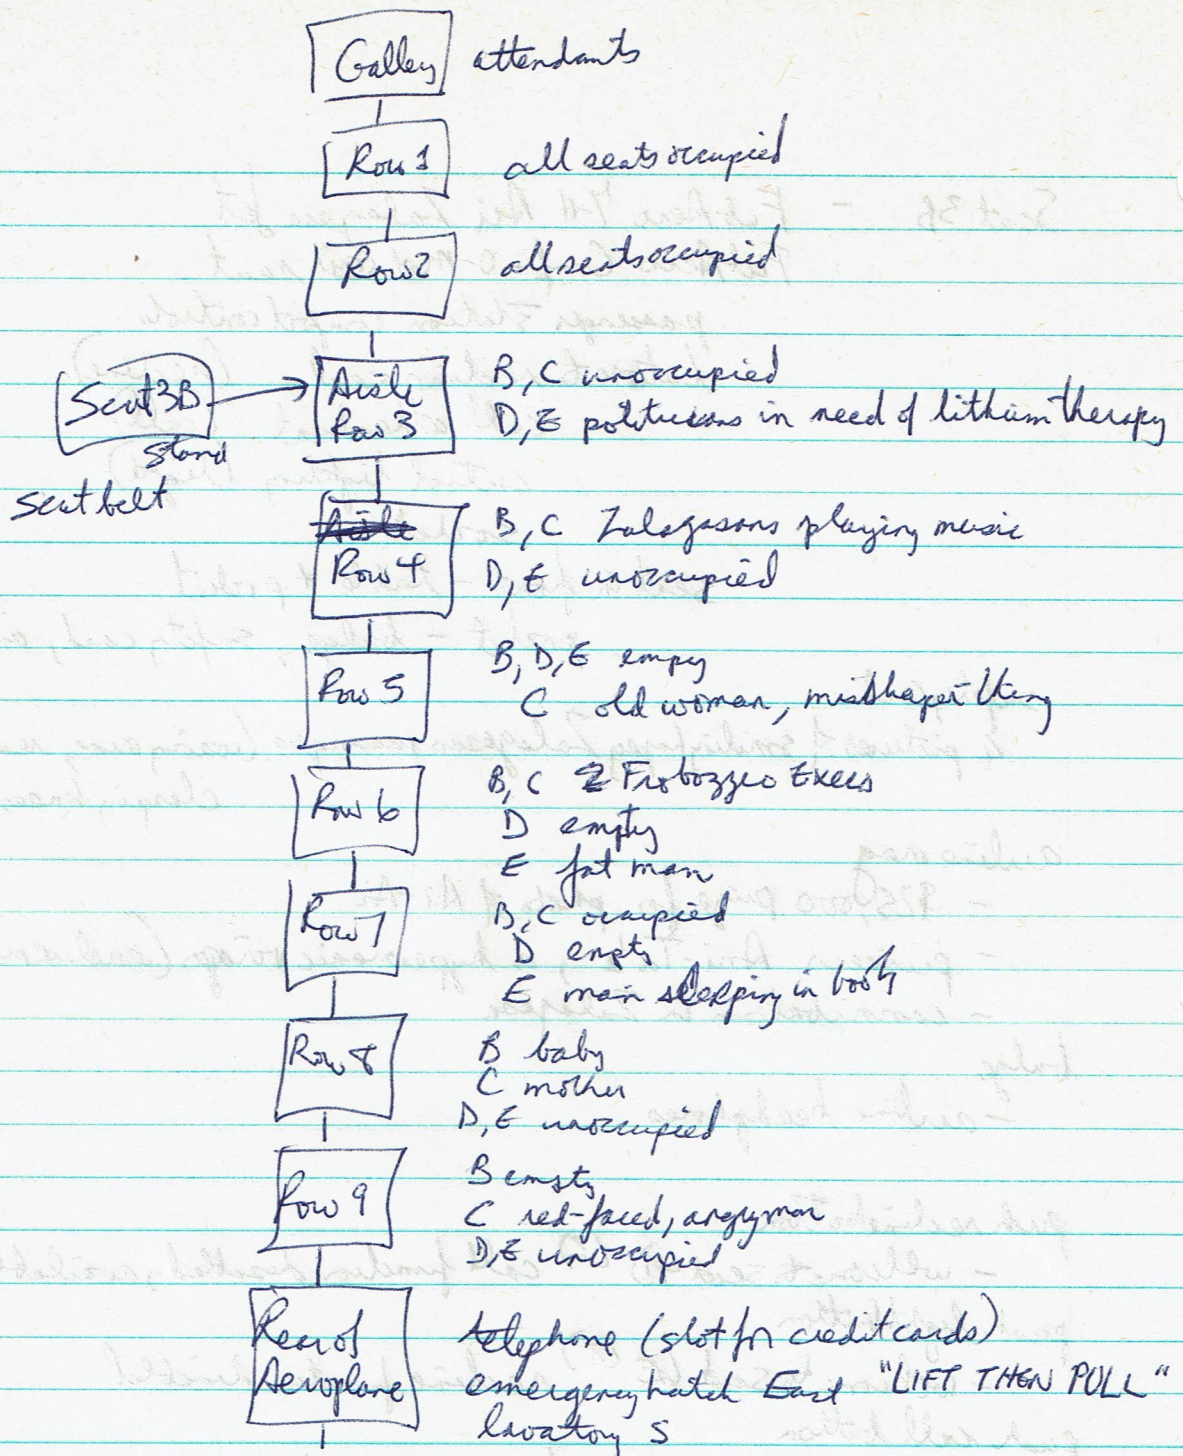 Galley attendants
Row 1 all seats occupied
Row 2 all seats occupied
Aisle B, C unoccupied
Seat 3B Row 3 D, E politicians in need of lithium therapy
stand
seat belt
Aisle B, C Zalagasans playing music
Row 4 D, E unoccupied
Row 5 B, D, E empy
C old woman, misshapen thing
Row 6 B, C 2 Frobozzco Execs
D empty
E fat man
Row 7 B, C occupied
D empty
E man sleeping in book
Row 8 B baby
C mother
D, E unoccupied
Row 9 B empty
C red-faced, angry man
D, E unoccupied
Rear of telephone (slot for credit cards)
Aeroplane emergency hatch East "LIFT THEN PULL"
lavatory S